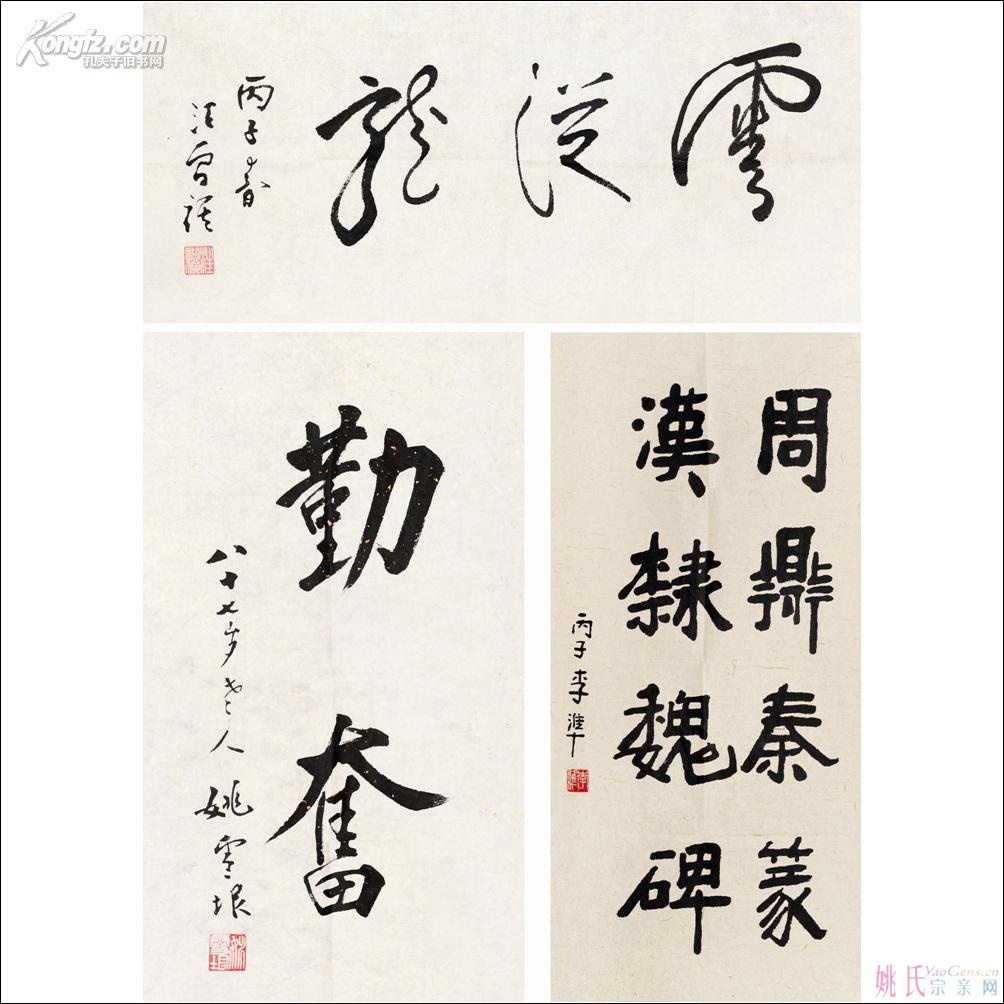 Kongfz.com
孔夫子旧书网
雲從龍
丙子春
汪曾祺
勤奮
八十七岁老人
姚雪垠
周鼎秦篆
漢隸魏碑
丙子李準
姚氏
YaoGens.cn
宗亲网